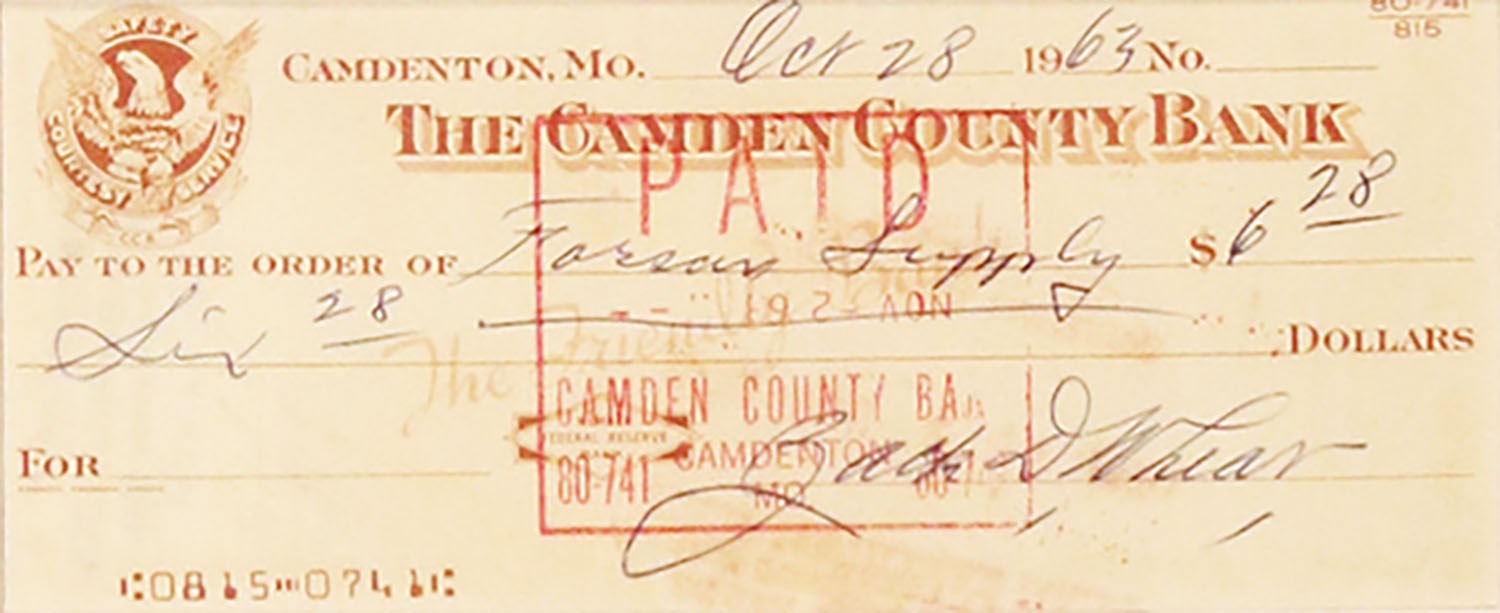 80-741
815
SAFETY
COURTESY SERVICE
CAMDENTON, MO. Oct 28 1963 No.
THE CAMDEN COUNTY BANK
PAID
PAY TO THE ORDER OF Forsan Supply $6 28
Six 28 DOLLARS
NOV - 2 63
The Friendly Bank
CAMDEN COUNTY BA
FEDERAL RESERVE
CAMDENTON
FOR Zack D Wheat
80-741 MO. 80-7
⑆0815⑉0741⑆